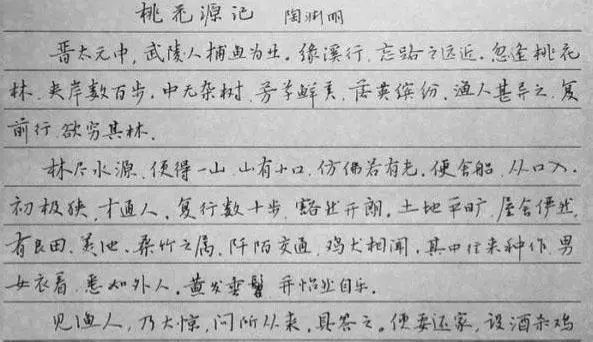 桃花源记 陶渊明
晋太元中,武陵人捕鱼为业。缘溪行,忘路之远近。忽逢桃花
林,夹岸数百步,中无杂树,芳草鲜美,落英缤纷,渔人甚异之,复
前行,欲穷其林。
林尽水源,便得一山,山有小口,仿佛若有光。便舍船,从口入。
初极狭,才通人。复行数十步,豁然开朗。土地平旷,屋舍俨然,
有良田、美池、桑竹之属。阡陌交通,鸡犬相闻。其中往来种作,男
女衣着,悉如外人。黄发垂髫,并怡然自乐。
见渔人,乃大惊,问所从来。具答之。便要还家,设酒杀鸡